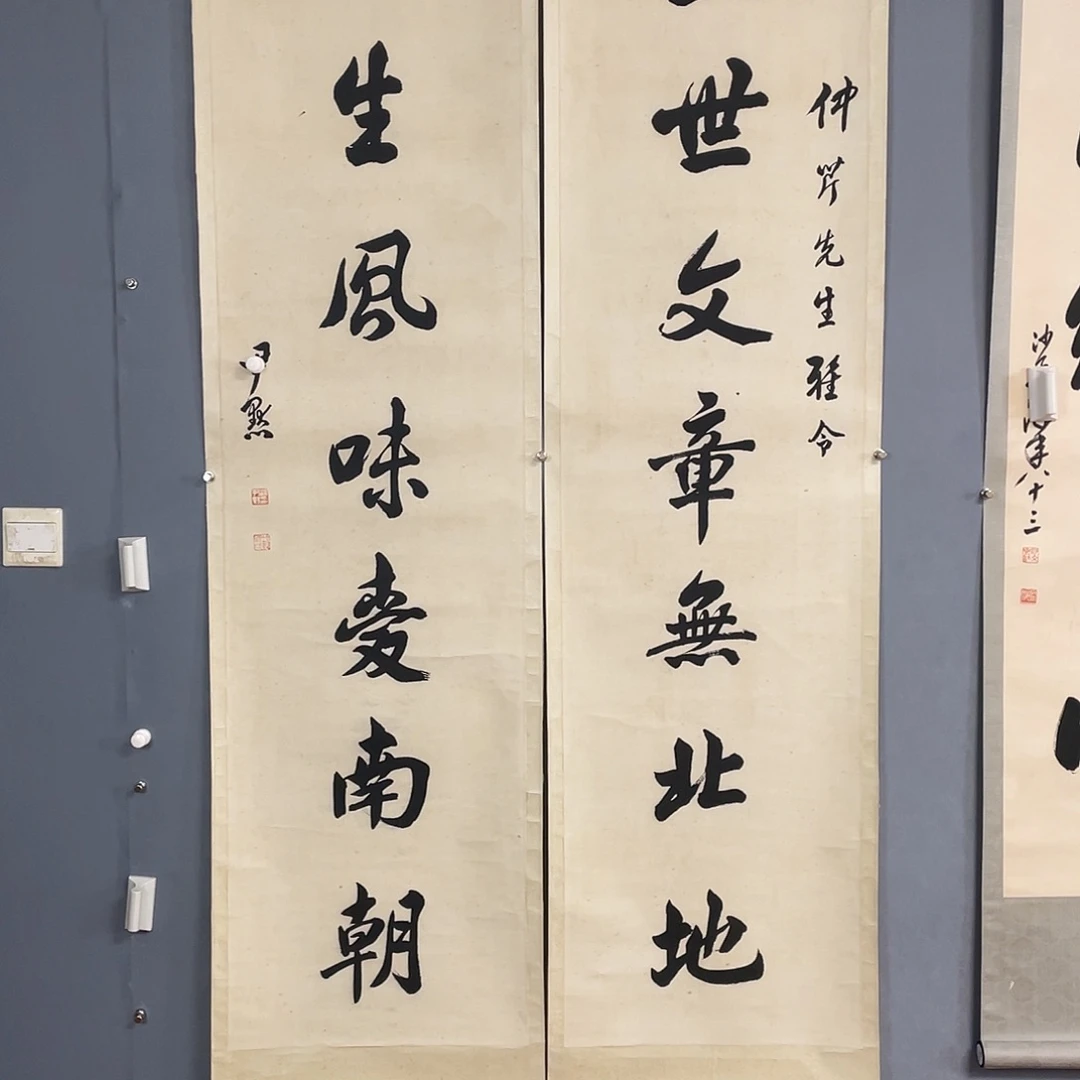 沙
年八十三
仲芹先生雅令
世文章無北地
生風味愛南朝
尹默